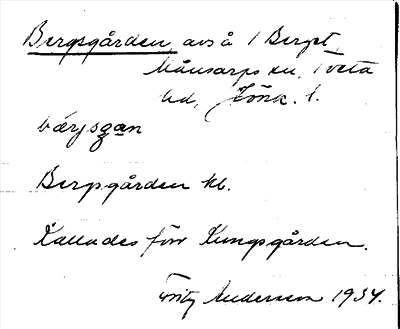 Bergsgården, avs å 1 Berget,
Månsarps sn, Tveta
hd, Jönk. l.
bærjsgan
Bergsgården kb.
Kallades förr Kungsgården.
Fritz Anderson 1934.